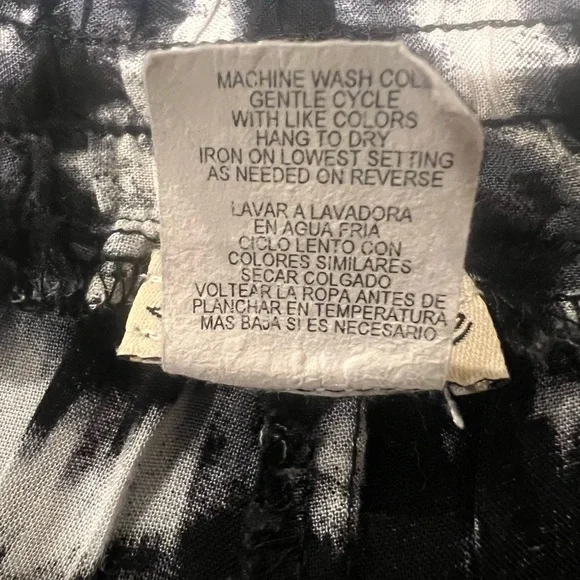 MACHINE WASH COL
GENTLE CYCLE
WITH LIKE COLORS
HANG TO DRY
IRON ON LOWEST SETTING
AS NEEDED ON REVERSE
LAVAR A LAVADORA
EN AGUA FRIA
CICLO LENTO CON
COLORES SIMILARES
SECAR COLGADO
VOLTEAR LA ROPA ANTES DE
PLANCHAR EN TEMPERATURA
MAS BAJA SI ES NECESARIO